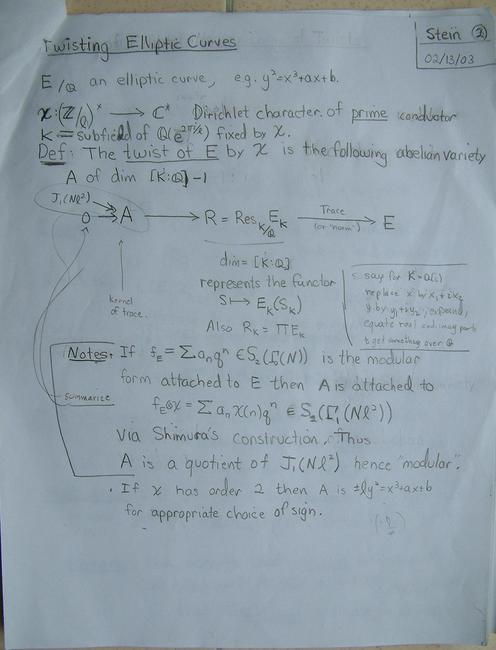 Stein ②
02/13/03
Twisting Elliptic Curves
E/Q an elliptic curve, eg. y²=x³+ax+b.
χ:(Z/ℓ)* → C* Dirichlet character of prime conductor
K = subfield of Q(e^{2πi/ℓ}) fixed by χ.
Def: The twist of E by χ is the following abelian variety
A of dim [K:Q]-1
J₁(Nℓ²)
0 → A → R = Res_{K/Q} E_K → E
Trace
(or "norm")
kernel
of trace.
dim = [K:Q]
represents the functor
S ↦ E_K(S_K)
Also R_K = ΠE_K
say for K=Q(i)
replace x by x₁+ix₂
y by y₁+iy₂, expand,
equate real and imag parts
to get something over Q
Notes: If f_E = Σaₙqⁿ ∈ S₂(Γ₀(N)) is the modular
form attached to E then A is attached to
summarize
f_{E⊗χ} = Σ aₙχ(n)qⁿ ∈ S₂(Γ₁(Nℓ²))
via Shimura's construction. Thus
A is a quotient of J₁(Nℓ²) hence "modular".
· If χ has order 2 then A is ±ℓy²=x³+ax+b
for appropriate choice of sign.